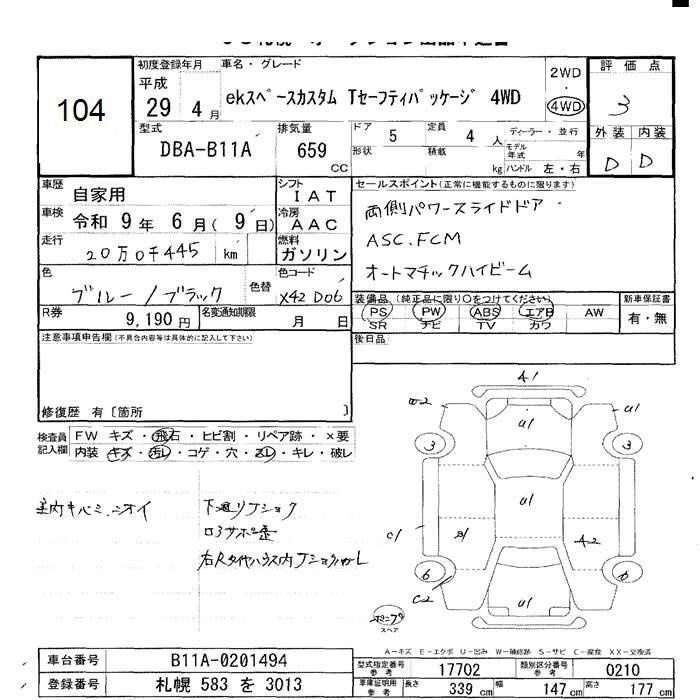 104
初度登録年月
平成
29 4月
車名・グレード
ekスペースカスタム Tセーフティパッケージ 4WD
2WD
・
4WD
評価点
3
外装 内装
D D
型式
DBA-B11A
排気量
659
CC
ドア 5
形状
定員 4 人
積載 kg
ディーラー・並行
モデル年式 年
ハンドル 左・右
車歴
自家用
車検
令和 9 年 6 月( 9 日)
走行
20万0千445 km
シフト
IAT
冷房
AAC
燃料
ガソリン
セールスポイント(正常に機能するものに限ります)
両側パワースライドドア
ASC.FCM
オートマチックハイビーム
色
ブルー/ブラック
色替
色コード
X42 D06
R券
9,190 円
名変通知期限
月 日
装備品 (純正品に限り○をつけてください)
PS PW ABS エアB AW
SR ナビ TV カワ
新車保証書
有・無
後日品
注意事項申告欄(不具合内容等は具体的に記入して下さい)
修復歴 有〔箇所 〕
検査員記入欄
FW キズ・飛石・ヒビ割・リペア跡・×要
内装 キズ・汚レ・コゲ・穴・スレ・キレ・破レ
室内キバミ、ニオイ
下廻りフショク
A1
U1
U1
3
3
U1
C1
A2
6
6
C2
U1
スペア
A-キズ E-エクボ U-凹み W-補修跡 S-サビ C-腐食 XX-交換済
車台番号
B11A-0201494
登録番号
札幌 583 を 3013
型式指定番号
参考
17702
類別区分番号
参考
0210
車庫証明用
参考
長さ 339 cm
幅 147 cm
高さ 177 cm